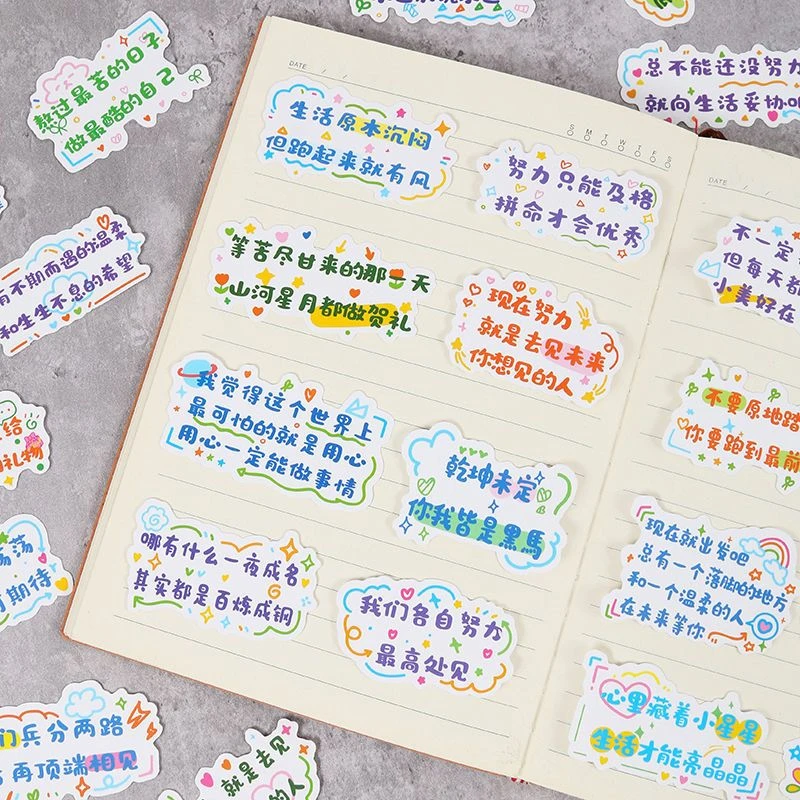 熬过最苦的日子
做最酷的自己
总不能还没努力
就向生活妥协吧
DATE / /
生活原本沉闷
但跑起来就有风
S M T W T F S
努力只能及格
拼命才会优秀
DATE / /
不一定
但每天都
小美好在
有不期而遇的温柔
和生生不息的希望
等苦尽甘来的那一天
山河星月都做贺礼
现在努力
就是去见未来
你想见的人
我觉得这个世界上
最可怕的就是用心
用心一定能做事情
乾坤未定
你我皆是黑馬
不要原地踏
你要跑到最前
给
礼物
荡荡
期待
哪有什么一夜成名
其实都是百炼成钢
我们各自努力
最高处见
现在就出发吧
总有一个落脚的地方
和一个温柔的人
在未来等你
心里藏着小星星
生活才能亮晶晶
们兵分两路
再顶端相见
就是去见
的人